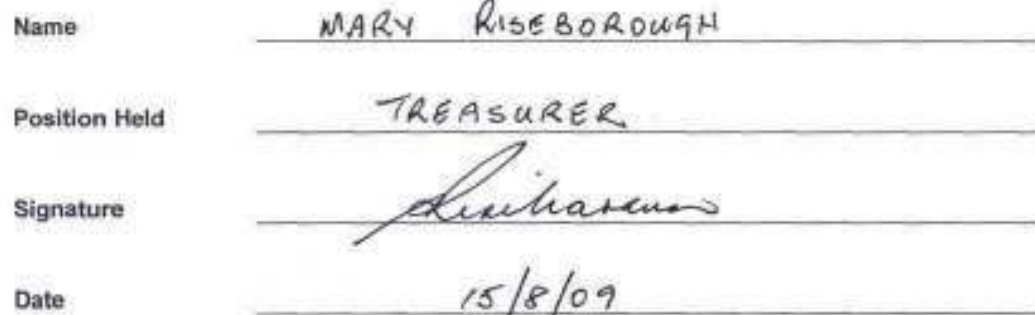 Name MARY RISEBOROUGH
Position Held TREASURER
Signature
Date 15/8/09